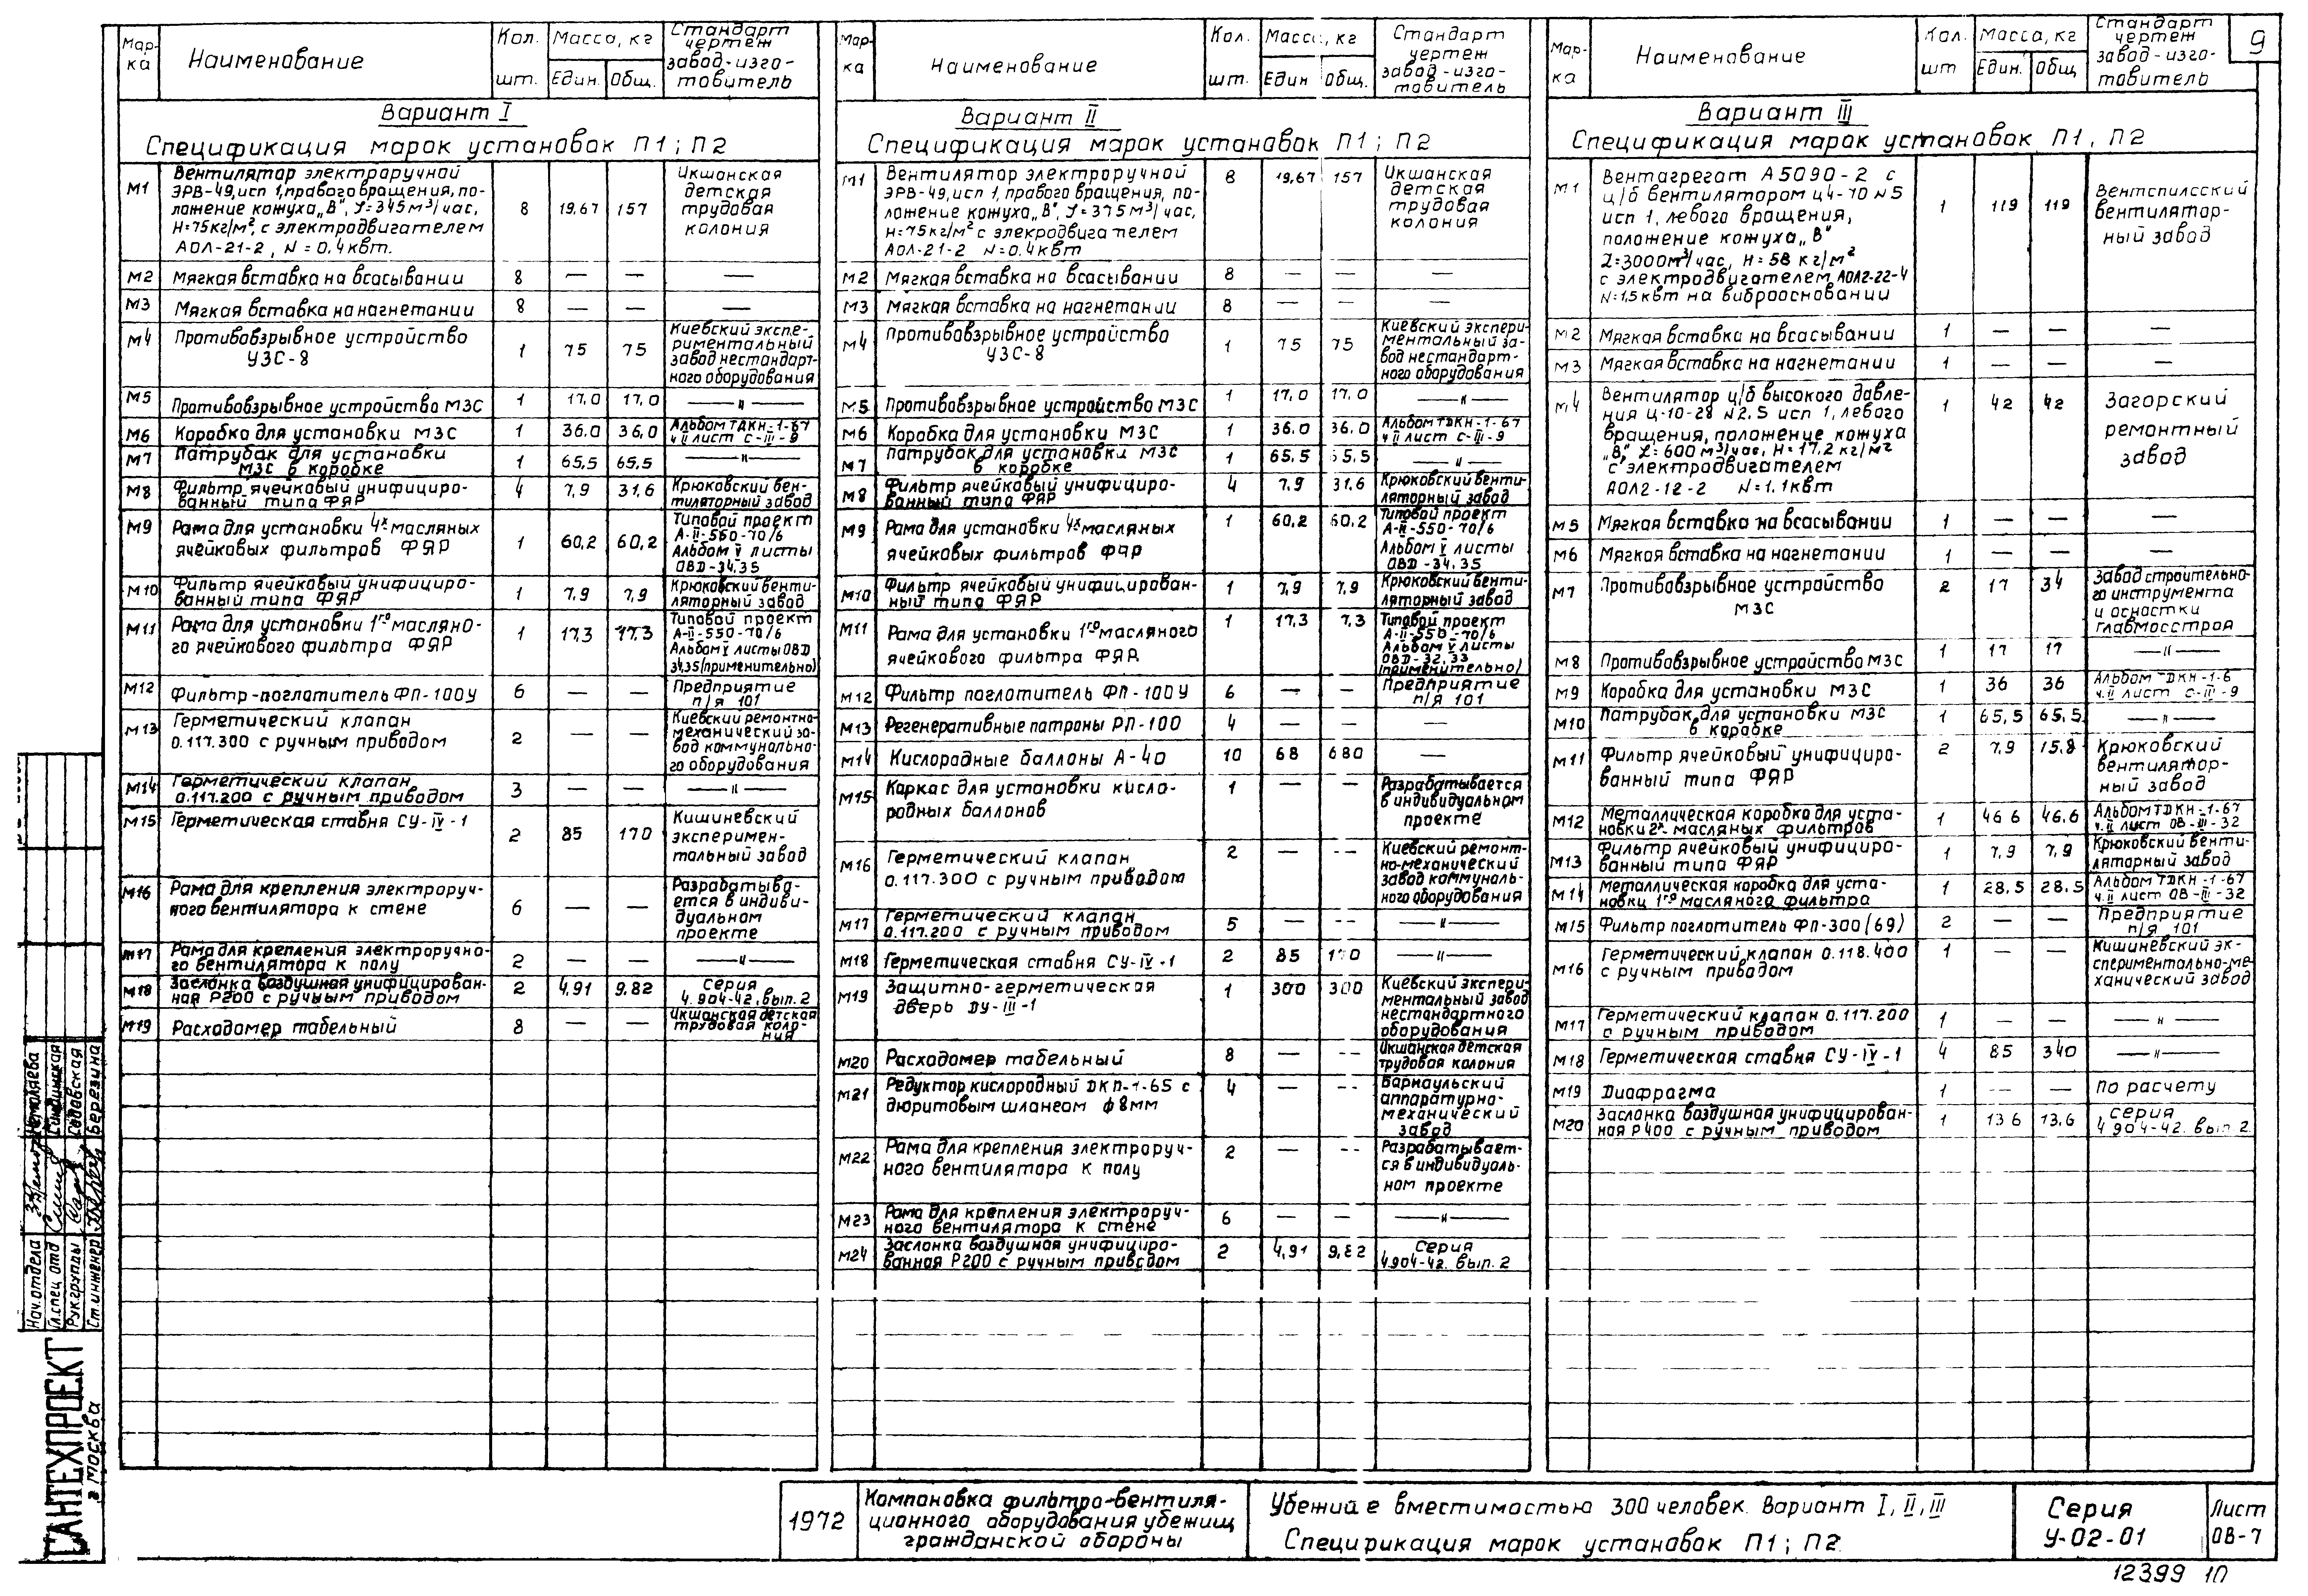 9
Мар-ка Наименование Кол. шт. Масса, кг Един. Общ. Стандарт чертеж завод-изготовитель
Вариант I
Спецификация марок установок П1; П2
М1 Вентилятор электроручной 8 19,67 157 Икшанская
ЭРВ-49, исп 1, правого вращения, по- детская
ложение кожуха „В", L=345м³/час, трудовая
Н=75кг/м², с электродвигателем колония
АОЛ-21-2, N=0.4квт.
М2 Мягкая вставка на всасывании 8 — — —
М3 Мягкая вставка на нагнетании 8 — — —
М4 Противовзрывное устройство 1 75 75 Киевский экспе-
УЗС-8 риментальный
завод нестандарт-
ного оборудования
М5 Противовзрывное устройство МЗС 1 17,0 17,0 —"—
М6 Коробка для установки МЗС 1 36.0 36,0 Альбом ТДКН-1-67
ч II лист С-III-9
М7 Патрубок для установки 1 65,5 65,5 —"—
МЗС в коробке
М8 Фильтр ячейковый унифициро- 4 7,9 31,6 Крюковский вен-
ванный типа ФЯР тиляторный завод
М9 Рама для установки 4х масляных 1 60,2 60,2 Типовой проект
ячейковых фильтров ФЯР А-II-550-70/6
Альбом V листы
ОВД-34,35
М10 Фильтр ячейковый унифициро- 1 7,9 7,9 Крюковский венти-
ванный типа ФЯР ляторный завод
М11 Рама для установки 1го масляно- 1 17,3 17,3 Типовой проект
го ячейкового фильтра ФЯР А-II-550-70/6
Альбом V листы ОВД
34,35 (применительно)
М12 Фильтр-поглотитель ФП-100У 6 — — Предприятие
п/я 101
М13 Герметический клапан 2 — — Киевский ремонтно-
0.117.300 с ручным приводом механический за-
вод коммунально-
го оборудования
М14 Герметический клапан 3 — — —"—
0.117.200 с ручным приводом
М15 Герметическая ставня СУ-IV-1 2 85 170 Кишиневский
эксперимен-
тальный завод
М16 Рама для крепления электроруч- 6 — — Разрабатыва-
ного вентилятора к стене ется в индиви-
дуальном
проекте
М17 Рама для крепления электроручно- 2 — — —"—
го вентилятора к полу
М18 Заслонка воздушная унифицирован- 2 4,91 9,82 Серия
ная Р200 с ручным приводом 4.904-42, вып. 2
М19 Расходомер табельный 8 — — Икшанская детская
трудовая коло-
ния
Мар-ка Наименование Кол. шт. Масса, кг Един Общ. Стандарт чертеж завод-изготовитель
Вариант II
Спецификация марок установок П1; П2
М1 Вентилятор электроручной 8 19,67 157 Икшанская
ЭРВ-49, исп 1, правого вращения, по- детская
ложение кожуха „В", L=375м³/час, трудовая
Н=75кг/м² с элекродвигателем колония
АОЛ-21-2 N=0.4квт
М2 Мягкая вставка на всасывании 8 — — —
М3 Мягкая вставка на нагнетании 8 — — —
М4 Противовзрывное устройство 1 75 75 Киевский экспери-
УЗС-8 ментальный за-
вод нестандарт-
ного оборудования
М5 Противовзрывное устройство МЗС 1 17,0 17,0 —"—
М6 Коробка для установки МЗС 1 36.0 36,0 Альбом ТДКН-1-67
ч II лист С-III-9
М7 Патрубок для установки МЗС 1 65,5 65,5 —"—
в коробке
М8 Фильтр ячейковый унифициро- 4 7,9 31,6 Крюковский венти-
ванный типа ФЯР ляторный завод
М9 Рама для установки 4х масляных 1 60,2 60,2 Типовой проект
ячейковых фильтров ФЯР А-II-550-70/6
Альбом V листы
ОВД-34,35
М10 Фильтр ячейковый унифицирован- 1 7,9 7,9 Крюковский венти-
ный типа ФЯР ляторный завод
М11 Рама для установки 1го масляного 1 17,3 7,3 Типовой проект
ячейкового фильтра ФЯР А-II-550-70/6
Альбом V листы
ОВД-32,33
применительно)
М12 Фильтр поглотитель ФП-100У 6 — — Предприятие
п/я 101
М13 Регенеративные патроны РП-100 4 — — —
М14 Кислородные баллоны А-40 10 68 680 —
М15 Каркас для установки кисло- 1 — — Разрабатывается
родных баллонов в индивидуальном
проекте
М16 Герметический клапан 2 — — Киевский ремонт-
0.117.300 с ручным приводом но-механический
завод коммуналь-
ного оборудования
М17 Герметический клапан 5 — — —"—
0.117.200 с ручным приводом
М18 Герметическая ставня СУ-IV-1 2 85 170 —"—
М19 Защитно-герметическая 1 300 300 Киевский экспери-
дверь ДУ-III-1 ментальный завод
нестандартного
оборудования
М20 Расходомер табельный 8 — — Икшанская детская
трудовая колония
М21 Редуктор кислородный ДКП-1-65 с 4 — — Барнаульский
дюритовым шлангом ф8мм аппаратурно-
механический
завод
М22 Рама для крепления электроруч- 2 — — Разрабатывает-
ного вентилятора к полу ся в индивидуаль-
ном проекте
М23 Рама для крепления электроруч- 6 — — —"—
ного вентилятора к стене
М24 Заслонка воздушная унифициро- 2 4,91 9,82 Серия
ванная Р200 с ручным приводом 4.904-42. вып. 2
Мар-ка Наименование Кол. шт Масса, кг Един. Общ Стандарт чертеж завод-изготовитель
Вариант III
Спецификация марок установок П1, П2
М1 Вентагрегат А5090-2 с 1 119 119 Вентспилсский
ц/б вентилятором ц4-70 №5 вентилятор-
исп 1, левого вращения, ный завод
положение кожуха „В"
L=3000м³/час, Н=58 кг/м²
с электродвигателем АОЛ2-22-4
N=1,5квт на виброосновании
М2 Мягкая вставка на всасывании 1 — — —
М3 Мягкая вставка на нагнетании 1 — — —
М4 Вентилятор ц/б высокого давле- 1 42 42 Загорский
ния ц-10-28 №2.5 исп 1, левого ремонтный
вращения, положение кожуха завод
„В", L=600м³/час, Н=17,2кг/м²
с электродвигателем
АОЛ2-12-2 N=1,1квт
М5 Мягкая вставка на всасывании 1 — — —
М6 Мягкая вставка на нагнетании 1 — — —
М7 Противовзрывное устройство 2 17 34 Завод строительно-
МЗС го инструмента
и оснастки
главмосстроя
М8 Противовзрывное устройство МЗС 1 17 17 —"—
М9 Коробка для установки МЗС 1 36 36 Альбом ТДКН-1-6
ч.II лист С-III-9
М10 Патрубок для установки МЗС 1 65,5 65,5 —"—
в коробке
М11 Фильтр ячейковый унифициро- 2 7,9 15,8 Крюковский
ванный типа ФЯР вентилятор-
ный завод
М12 Металлическая коробка для уста- 1 46 6 46,6 Альбом ТДКН-1-67
новки 2х масляных фильтров ч.II лист ОВ-III-32
М13 Фильтр ячейковый унифициро- 1 7,9 7,9 Крюковский венти-
ванный типа ФЯР ляторный завод
М14 Металлическая коробка для уста- 1 28,5 28,5 Альбом ТДКН-1-67
новки 1го масляного фильтра ч.II лист ОВ-III-32
М15 Фильтр поглотитель ФП-300(69) 2 — — Предприятие
п/я 101
М16 Герметический клапан 0.118.400 1 — — Кишиневский эк-
с ручным приводом спериментально-ме-
ханический завод
М17 Герметический клапан 0.117.200 1 — — —"—
с ручным приводом
М18 Герметическая ставня СУ-IV-1 4 85 340 —"—
М19 Диафрагма 1 — — По расчету
М20 Заслонка воздушная унифицирован- 1 13 6 13,6 серия
ная Р400 с ручным приводом 4 904-42. вып 2.
Нач. отдела
Гл. спец отд Синдинская
Рук.группы Садовская
Ст. инженер Березина
САНТЕХПРОЕКТ
г Москва
1972
Компоновка фильтро-вентиля-
ционного оборудования убежищ
гражданской обороны
Убежище вместимостью 300 человек. Вариант I, II, III
Спецификация марок установок П1; П2
Серия
У-02-01
Лист
ОВ-7
12399 10